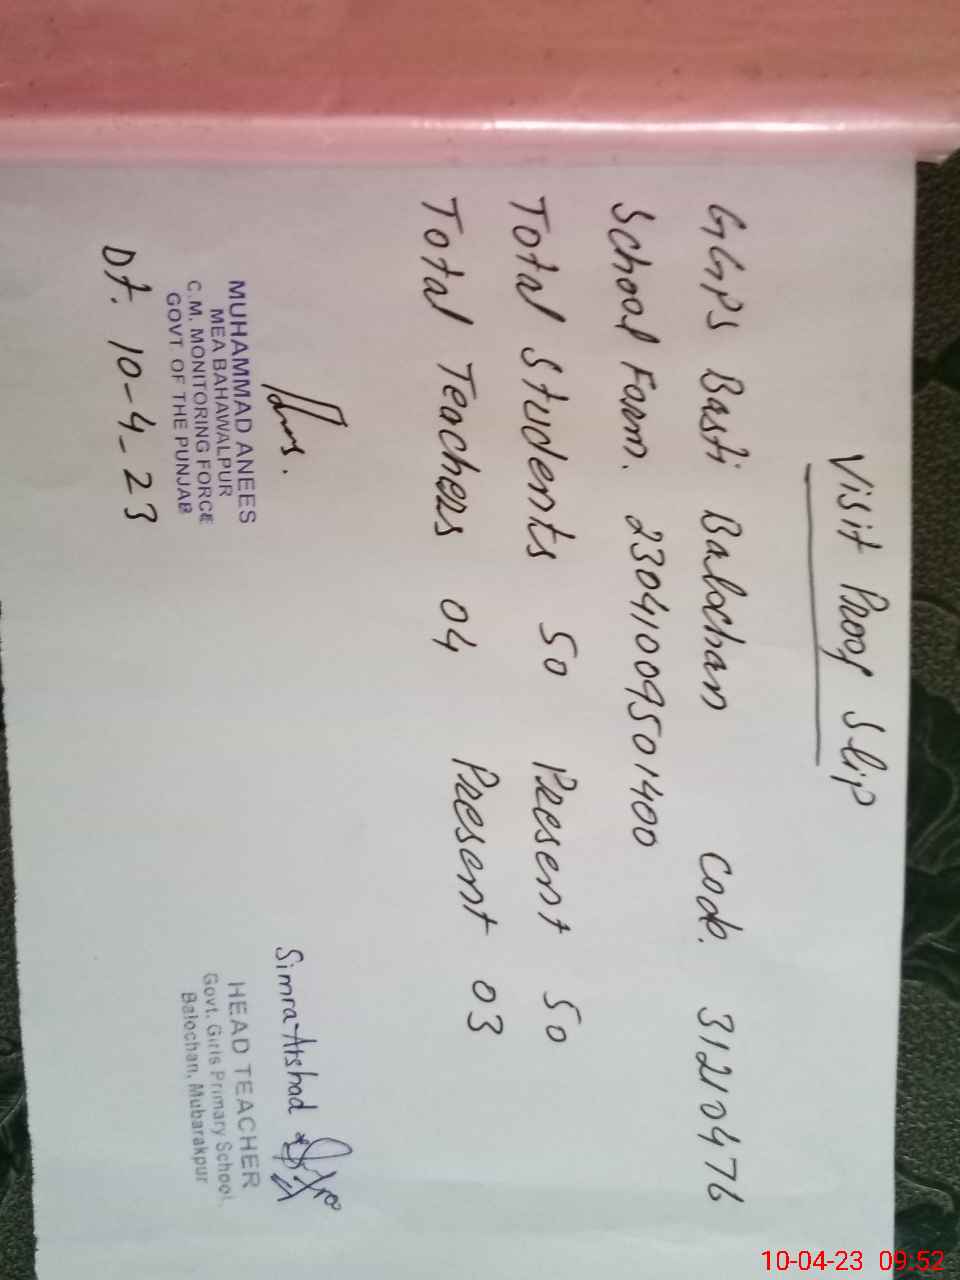 Visit Proof Slip
GGPS Basti Balochan Code. 31210476
School Form. 23041009501400
Total Students 50 Present 50
Total Teachers 04 Present 03
MUHAMMAD ANEES
MEA BAHAWALPUR
C.M. MONITORING FORCE
GOVT. OF THE PUNJAB
Dt. 10-4-23
Simra Arshad
HEAD TEACHER
Govt. Girls Primary School
Balochan, Mubarakpur
10-04-23 09:52